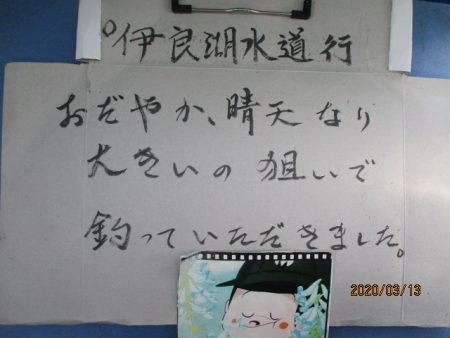 °伊良湖水道行
おだやか、晴天なり
大きいの狙いで
釣っていただきました。
2020/03/13